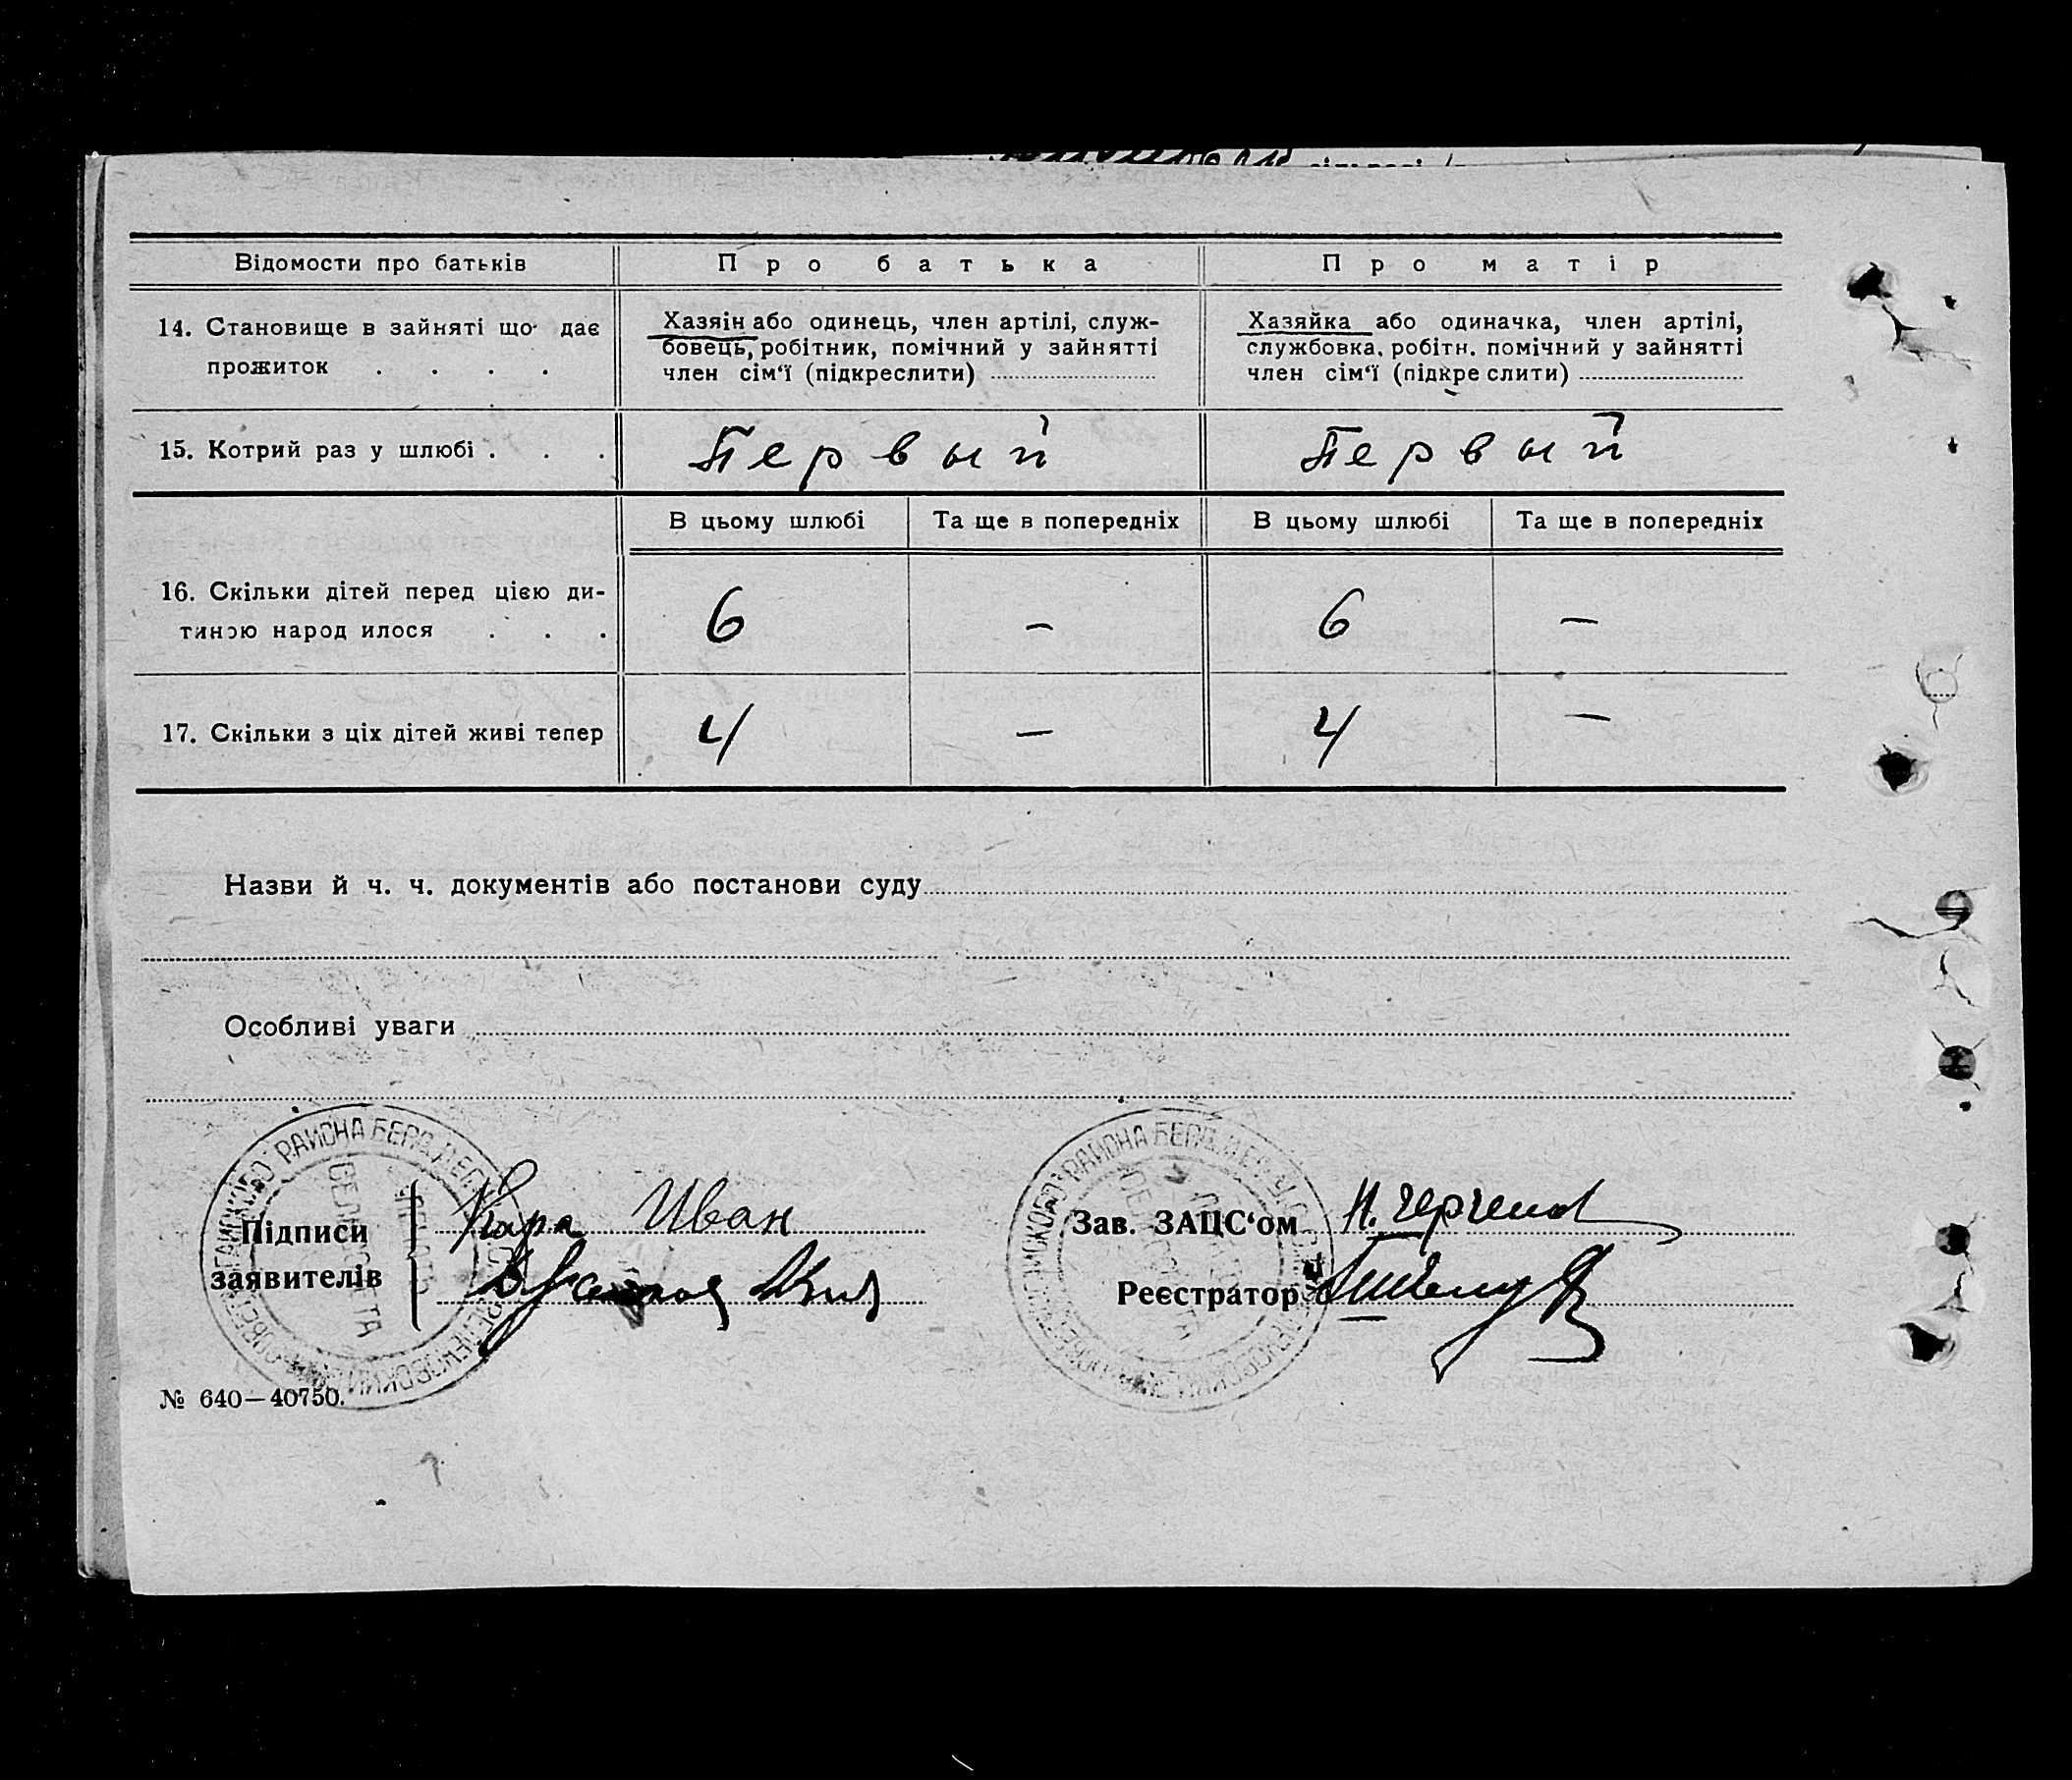 Відомости про батьків
Про батька
Про матір
14. Становище в зайняті що дає
прожиток . . . .
Хазяїн або одинець, член артілі, служ-
бовець, робітник, помічний у зайнятті
член сім‘ї (підкреслити)
Хазяйка або одиначка, член артілі,
службовка, робітн. помічний у зайнятті
член сім‘ї (підкре слити)
15. Котрий раз у шлюбі . . .
Первый
Первый
В цьому шлюбі
Та ще в попередніх
В цьому шлюбі
Та ще в попередніх
16. Скільки дітей перед цією ди-
тиною народ илося . . .
6
—
6
—
17. Скільки з ціх дітей живі тепер
4
—
4
—
Назви й ч. ч. документів або постанови суду
Особливі уваги
РАЙОНА
РАЙОНА
Підписи
заявителів
Кара Иван
Зав. ЗАЦС‘ом
Реєстратор
№ 640—40750.